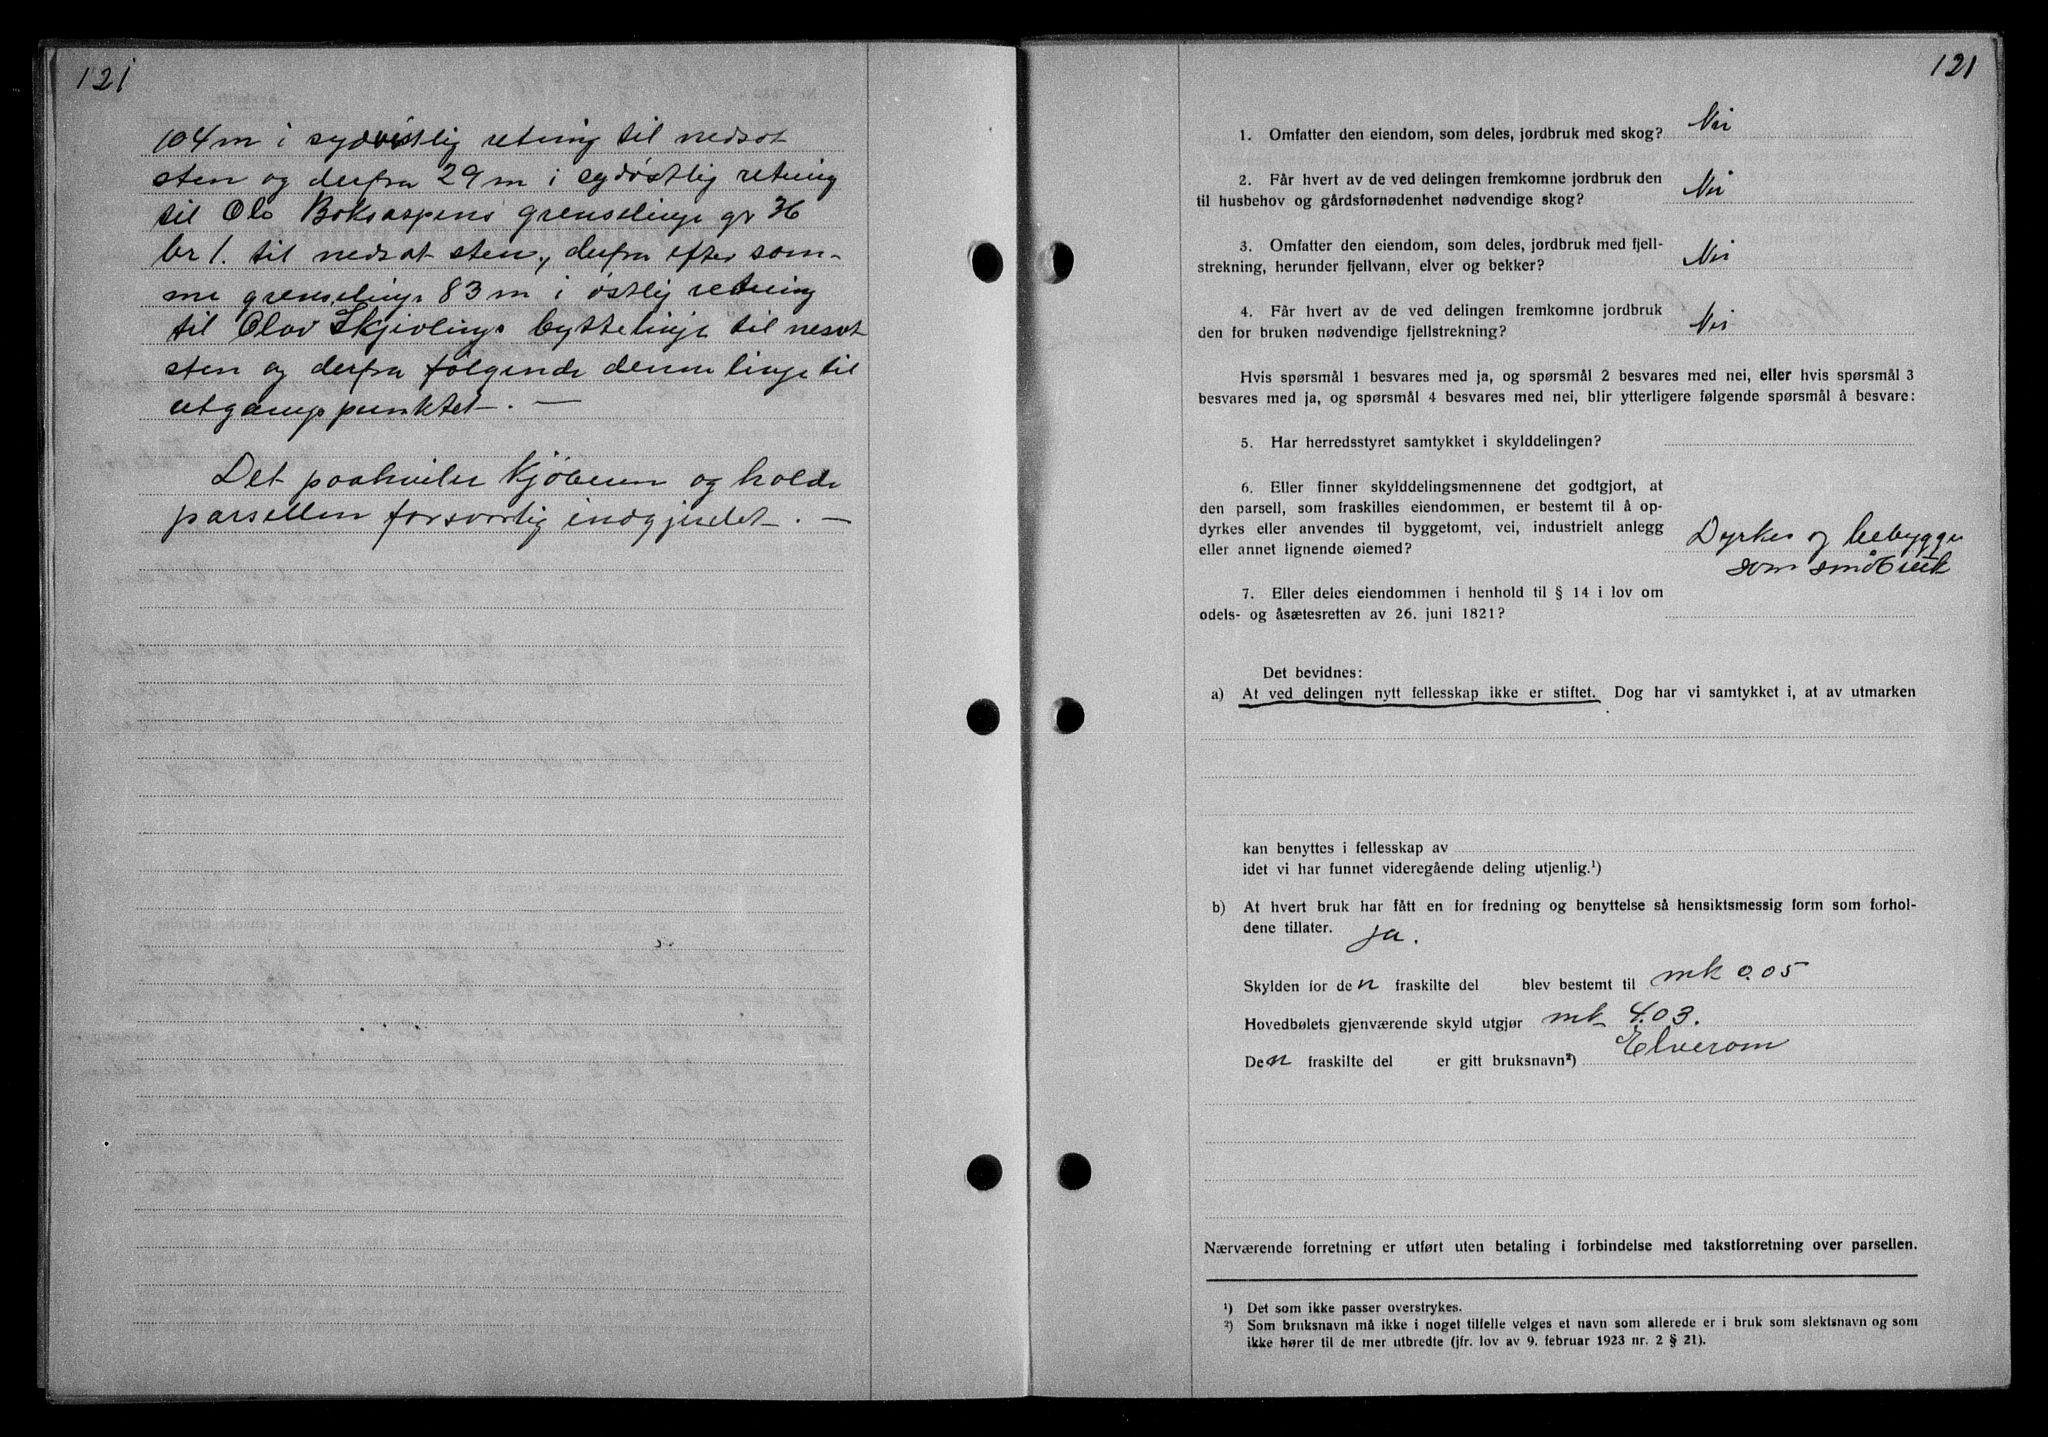 121
104 m i sydvestlig retning til nedsat
sten og derfra 29 m i sydøstlig retning
til Ole Boksaspens grenselinje gr 36
br 1. til nedsat sten, derfra efter sam-
me grenselinje 83 m i østlig retning
til Olav Skjevlings byttelinje til nesat
sten og derfra følgende denne linje til
utgangspunktet. —
Det paahviler kjøberen og holde
parsellen forsvarlig indgjerdet. —
121
1. Omfatter den eiendom, som deles, jordbruk med skog? Nei
2. Får hvert av de ved delingen fremkomne jordbruk den
til husbehov og gårdsfornødenhet nødvendige skog? Nei
3. Omfatter den eiendom, som deles, jordbruk med fjell-
strekning, herunder fjellvann, elver og bekker? Nei
4. Får hvert av de ved delingen fremkomne jordbruk
den for bruken nødvendige fjellstrekning? Nei
Hvis spørsmål 1 besvares med ja, og spørsmål 2 besvares med nei, eller hvis spørsmål 3
besvares med ja, og spørsmål 4 besvares med nei, blir ytterligere følgende spørsmål å besvare:
5. Har herredsstyret samtykket i skylddelingen?
6. Eller finner skylddelingsmennene det godtgjort, at
den parsell, som fraskilles eiendommen, er bestemt til å op-
dyrkes eller anvendes til byggetomt, vei, industrielt anlegg
eller annet lignende øiemed? Dyrkes og bebygge
som småbruk
7. Eller deles eiendommen i henhold til § 14 i lov om
odels- og åsætesretten av 26. juni 1821?
Det bevidnes:
a) At ved delingen nytt fellesskap ikke er stiftet. Dog har vi samtykket i, at av utmarken
kan benyttes i fellesskap av
idet vi har funnet videregående deling utjenlig.¹)
b) At hvert bruk har fått en for fredning og benyttelse så hensiktsmessig form som forhol-
dene tillater. ja.
Skylden for den fraskilte del blev bestemt til mk 0.05
Hovedbølets gjenværende skyld utgjør mk 4.03.
Den fraskilte del er gitt bruksnavn²) Elverom
Nærværende forretning er utført uten betaling i forbindelse med takstforretning over parsellen.
¹) Det som ikke passer overstrykes.
²) Som bruksnavn må ikke i noget tilfelle velges et navn som allerede er i bruk som slektsnavn og som
ikke hører til de mer utbredte (jfr. lov av 9. februar 1923 nr. 2 § 21).